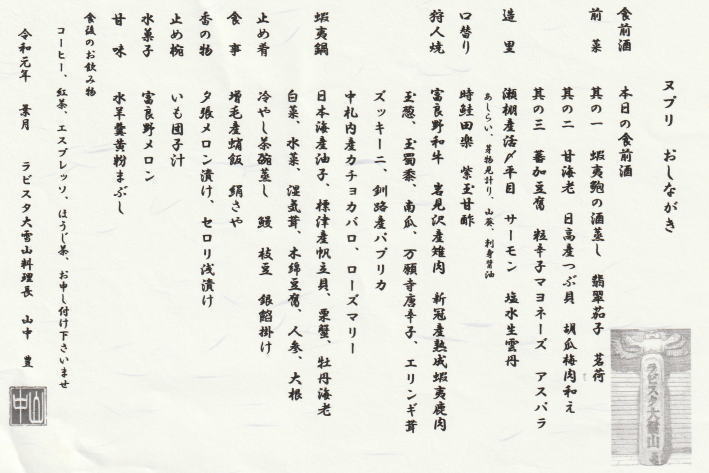 ヌプリ　おしながき
食前酒　本日の食前酒
前菜　其の一　蝦夷鮑の酒蒸し　翡翠茄子　茗荷
其の二　甘海老　日高産つぶ貝　胡瓜梅肉和え
其の三　蕃加豆腐　粒辛子マヨネーズ　アスパラ
造里　瀬棚産活〆平目　サーモン　塩水生雲丹
あしらい、芽物見計り、山葵、刺身醤油
口替り　時鮭田楽　紫玉甘酢
狩人焼　富良野和牛　岩見沢産雉肉　新冠産熟成蝦夷鹿肉
玉葱、玉蜀黍、南瓜、万願寺唐辛子、エリンギ茸
ズッキーニ、釧路産パプリカ
中札内産カチョカバロ、ローズマリー
蝦夷鍋　日本海産油子、標津産帆立貝、栗蟹、牡丹海老
白菜、水菜、湿気茸、木綿豆腐、人参、大根
止め肴　冷やし茶碗蒸し　鰻　枝豆　銀餡掛け
食事　増毛産蛸飯　絹さや
香の物　夕張メロン漬け、セロリ浅漬け
止め椀　いも団子汁
水菓子　富良野メロン
甘味　水羊羹黄粉まぶし
食後のお飲み物
コーヒー、紅茶、エスプレッソ、ほうじ茶、お申し付け下さいませ
令和元年　葉月　ラビスタ大雪山料理長　山中　豊
山中
ラビスタ大雪山